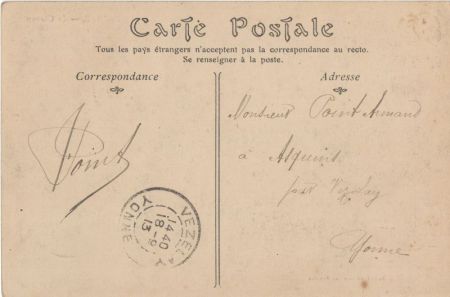 Carte Postale
Tous les pays étrangers n'acceptent pas la correspondance au recto.
Se renseigner à la poste.
Correspondance
Adresse
Point
Monsieur Point Armand
à Asquins
par Vézelay
Yonne
VEZELAY
14 40
18 -9
13
YONNE